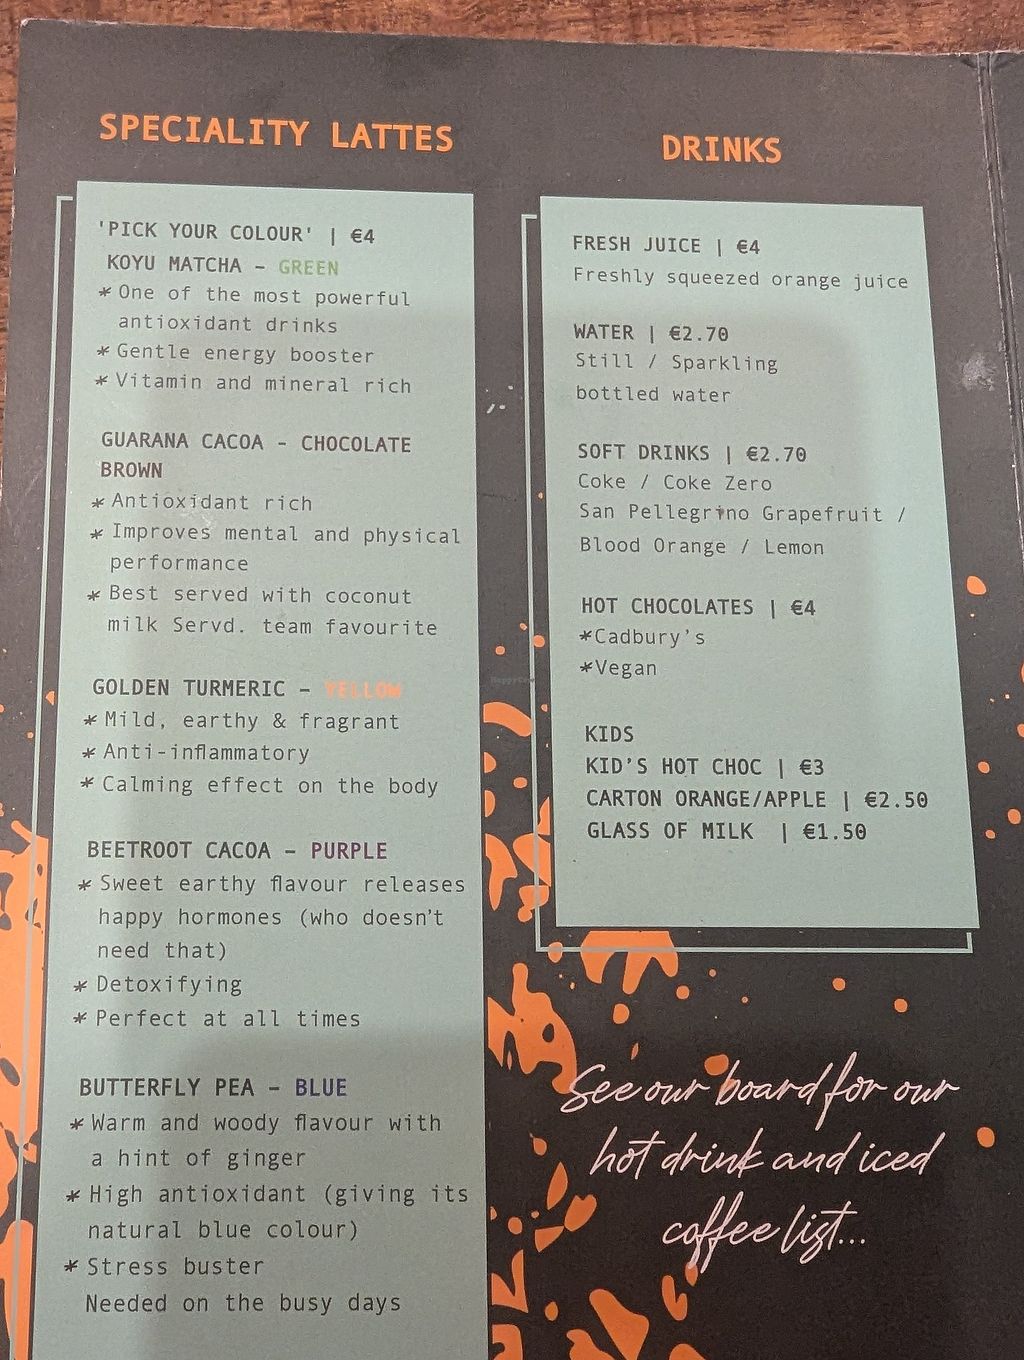 SPECIALITY LATTES
'PICK YOUR COLOUR' | €4
KOYU MATCHA – GREEN
* One of the most powerful
antioxidant drinks
* Gentle energy booster
* Vitamin and mineral rich
GUARANA CACOA - CHOCOLATE
BROWN
* Antioxidant rich
* Improves mental and physical
performance
* Best served with coconut
milk Servd. team favourite
GOLDEN TURMERIC – YELLOW
* Mild, earthy & fragrant
* Anti-inflammatory
* Calming effect on the body
BEETROOT CACOA – PURPLE
* Sweet earthy flavour releases
happy hormones (who doesn't
need that)
* Detoxifying
* Perfect at all times
BUTTERFLY PEA – BLUE
* Warm and woody flavour with
a hint of ginger
* High antioxidant (giving its
natural blue colour)
* Stress buster
Needed on the busy days
DRINKS
FRESH JUICE | €4
Freshly squeezed orange juice
WATER | €2.70
Still / Sparkling
bottled water
SOFT DRINKS | €2.70
Coke / Coke Zero
San Pellegrino Grapefruit /
Blood Orange / Lemon
HOT CHOCOLATES | €4
*Cadbury's
*Vegan
KIDS
KID'S HOT CHOC | €3
CARTON ORANGE/APPLE | €2.50
GLASS OF MILK | €1.50
See our board for our
hot drink and iced
coffee list...
HappyCow